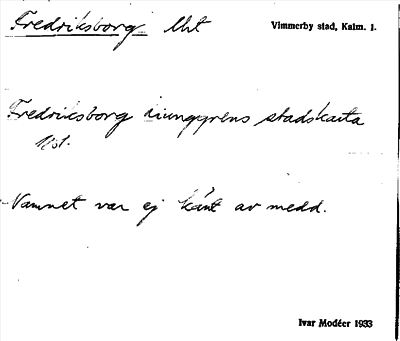 Fredriksborg lht
Vimmerby stad, Kalm. l.
Fredriksborg Ljunggrens stadskarta
Namnet var ej känt av medd.
Ivar Modéer 1933